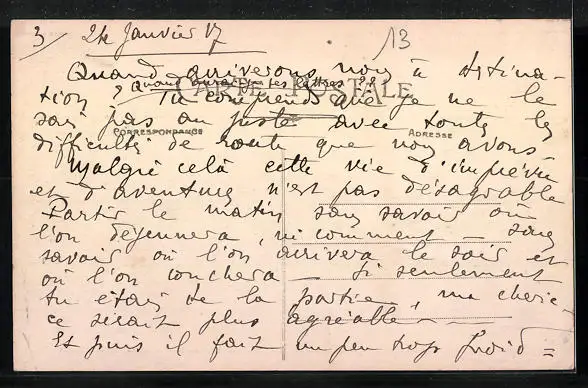 3/ 24 Janvier 17
13
Quand arriverons nous à destina-
tion ? Quand aurai-je tes lettres ??
CARTE POSTALE
Tu comprends que je ne le
sais pas au juste avec toutes les
CORRESPONDANCE
ADRESSE
difficultés de route que nous avons
Malgré celà cette vie d'imprévu
et d'aventures n'est pas désagréable
Partir le matin sans savoir où
l'on déjeunera, ni comment – sans
savoir où l'on arrivera le soir et
où l'on couchera – Si seulement
tu étais de la partie, ma cherie
ce serait plus agréable –
Et puis il fait un peu trop froid =